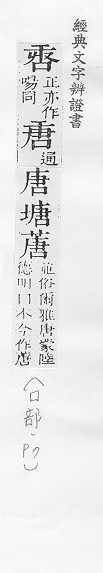 經典文字辨證書
唐 正亦作
啺同
唐通
唐塘蓎
並俗爾雅唐蒙陸
德明曰本今作蓎
(口部·P7)